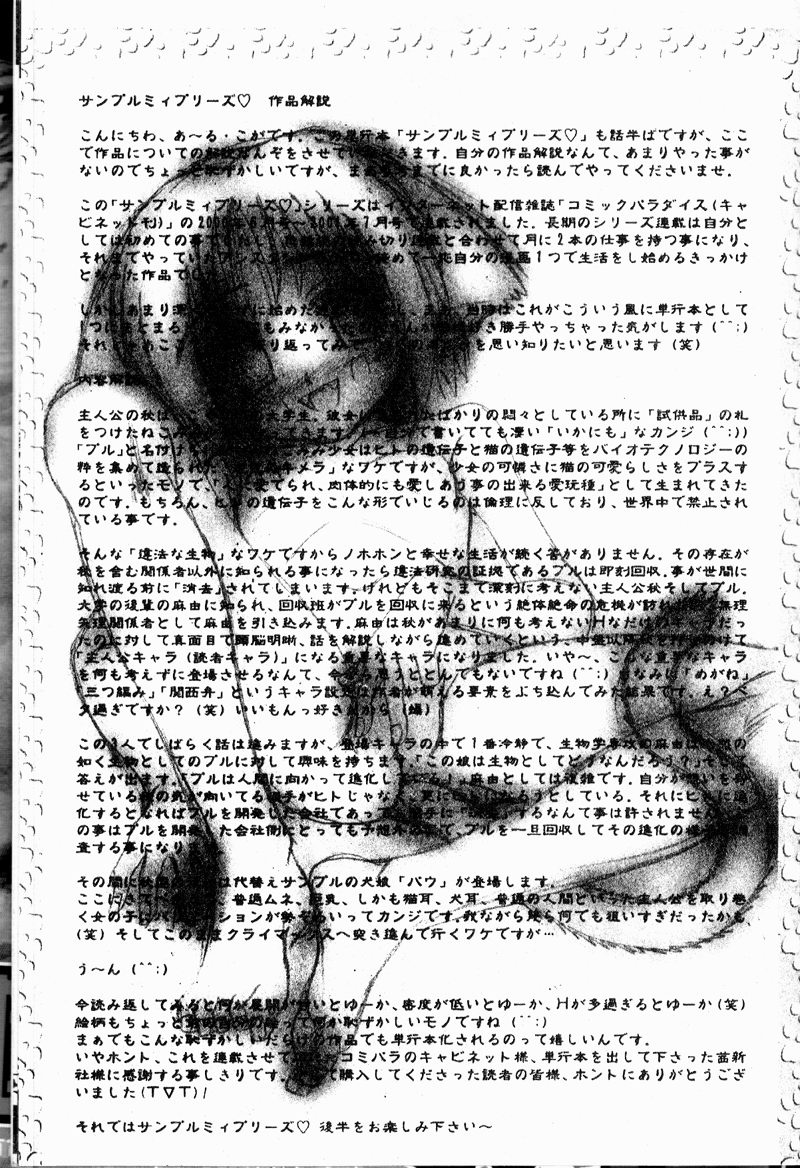 サンプルミィプリーズ♡　作品解説
こんにちわ、あ～る・こがです。この単行本「サンプルミィプリーズ♡」も話半ばですが、ここ
で作品についての解説なんぞをさせていただきます。自分の作品解説なんて、あまりやった事が
ないのでちょっと恥ずかしいですが、まぁ 良かったら読んでやってくださいませ。
この「サンプルミィプリーズ♡」シリーズはインターネット配信雑誌「コミックパラダイス(キャ
ビネット刊)」の 7月号で連載されました。長期のシリーズ連載は自分と
しては初めての事で 読み切り連載と合わせて月に2本の仕事を持つ事になり、
それまでやっていた 自分の漫画1つで生活をし始めるきっかけ
となった作品で
しかしあまり深 に始めた 当時はこれがこういう風に単行本として
1つにまとまる もみなかった 好き勝手やっちゃった気がします(^^;)
それ 振り返ってみて を思い知りたいと思います(笑)
内容解説
主人公の秋は 大学生。彼女に ばかりの悶々としている所に「試供品」の札
をつけたねこ 書いてても凄い「いかにも」なカンジ(^^;))
「プル」と名付け 少女はヒトの遺伝子と猫の遺伝子等をバイオテクノロジーの
粋を集めて造られた キメラ」なワケですが、少女の可憐さに猫の可愛らしさをプラスす
るといったモノで、「人に愛でられ、肉体的にも愛しあう事の出来る愛玩種」として生まれてきた
のです。もちろん、ヒトの遺伝子をこんな形でいじるのは倫理に反しており、世界中で禁止され
ている事です。
そんな「違法な生物」なワケですからノホホンと幸せな生活が続く筈がありません。その存在が
秋を含む関係者以外に知られる事になったら違法研究の証拠であるプルは即刻回収。事が世間に
知れ渡る前に「消去」されてしまいます。けれどもそこまで深刻に考えない主人公秋そしてプル。
大学の後輩の麻由に知られ、回収班がプルを回収に来るという絶体絶命の危機が訪れ 無理
矢理関係者として麻由を引き込みます。麻由は秋があまりに何も考えない だっ
たのに対して真面目で頭脳明晰、話を解説しながら進めていくという、中盤以降 かけて
「主人公キャラ(読者キャラ)」になる重要なキャラになりました。いや～、こんな重要なキャラ
を何も考えずに登場させるなんて、今から思うととんでもないですね(^^;)ちなみに「めがね」
「三つ編み」「関西弁」というキャラ設定は作者が萌える要素をぶち込んでみた結果です。え？ベ
タ過ぎですか？(笑)いいもんっ好きだから(爆)
この3人でしばらく話は進みますが、登場キャラの中で1番冷静で、生物学専攻の麻由は の
如く生物としてのプルに対して興味を持ちます。「この娘は生物としてどうなんだろう？」そして
答えが出ます。「プルは人間に向かって進化している！」麻由としては複雑です。自分が想いを寄
せている秋の気が向いてる相手がヒトじゃなく、更に している。それにヒトに進
化するとなればプルを開発した会社であっても勝手に「 」するなんて事は許されません。
の事はプルを開発した会社側にとっても予想外の事で、プルを一旦回収してその進化の様子を調
査する事になり
その間に秋の は代替えサンプルの犬娘「バウ」が登場します。
ここにきて 、普通ムネ、巨乳、しかも猫耳、犬耳、普通の人間といった主人公を取り巻
く女の子にバリエーションが勢ぞろいってカンジです。我ながら幾ら何でも狙いすぎだったかも
(笑)そしてこのままクライマックスへ突き進んで行くワケですが…
う～ん(^^;)
今読み返してみると何か展開が とゆーか、密度が低いとゆーか、Hが多過ぎるとゆーか(笑)
絵柄もちょっと って何か恥ずかしいモノですね(^^;)
まぁでもこんな恥ずかしいだらけの作品でも単行本化されるのって嬉しいんです。
いやホント、これを連載させて コミパラのキャビネット様、単行本を出して下さった茜新
社様に感謝する事しきりです。 購入してくださった読者の皆様、ホントにありがとうござ
いました(T▽T)/
それではサンプルミィプリーズ♡ 後半をお楽しみ下さい～